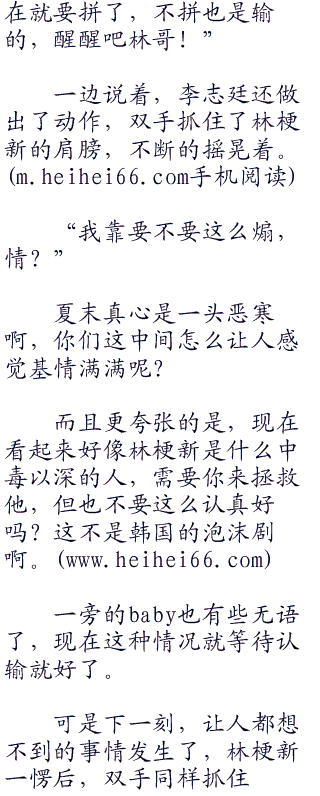 在就要拼了，不拼也是输
的，醒醒吧林哥！”
一边说着，李志廷还做
出了动作，双手抓住了林梗
新的肩膀，不断的摇晃着。
(m.heihei66.com手机阅读)
“我靠要不要这么煽，
情？”
夏末真心是一头恶寒
啊，你们这中间怎么让人感
觉基情满满呢？
而且更夸张的是，现在
看起来好像林梗新是什么中
毒以深的人，需要你来拯救
他，但也不要这么认真好
吗？这不是韩国的泡沫剧
啊。(www.heihei66.com)
一旁的baby也有些无语
了，现在这种情况就等待认
输就好了。
可是下一刻，让人都想
不到的事情发生了，林梗新
一愣后，双手同样抓住